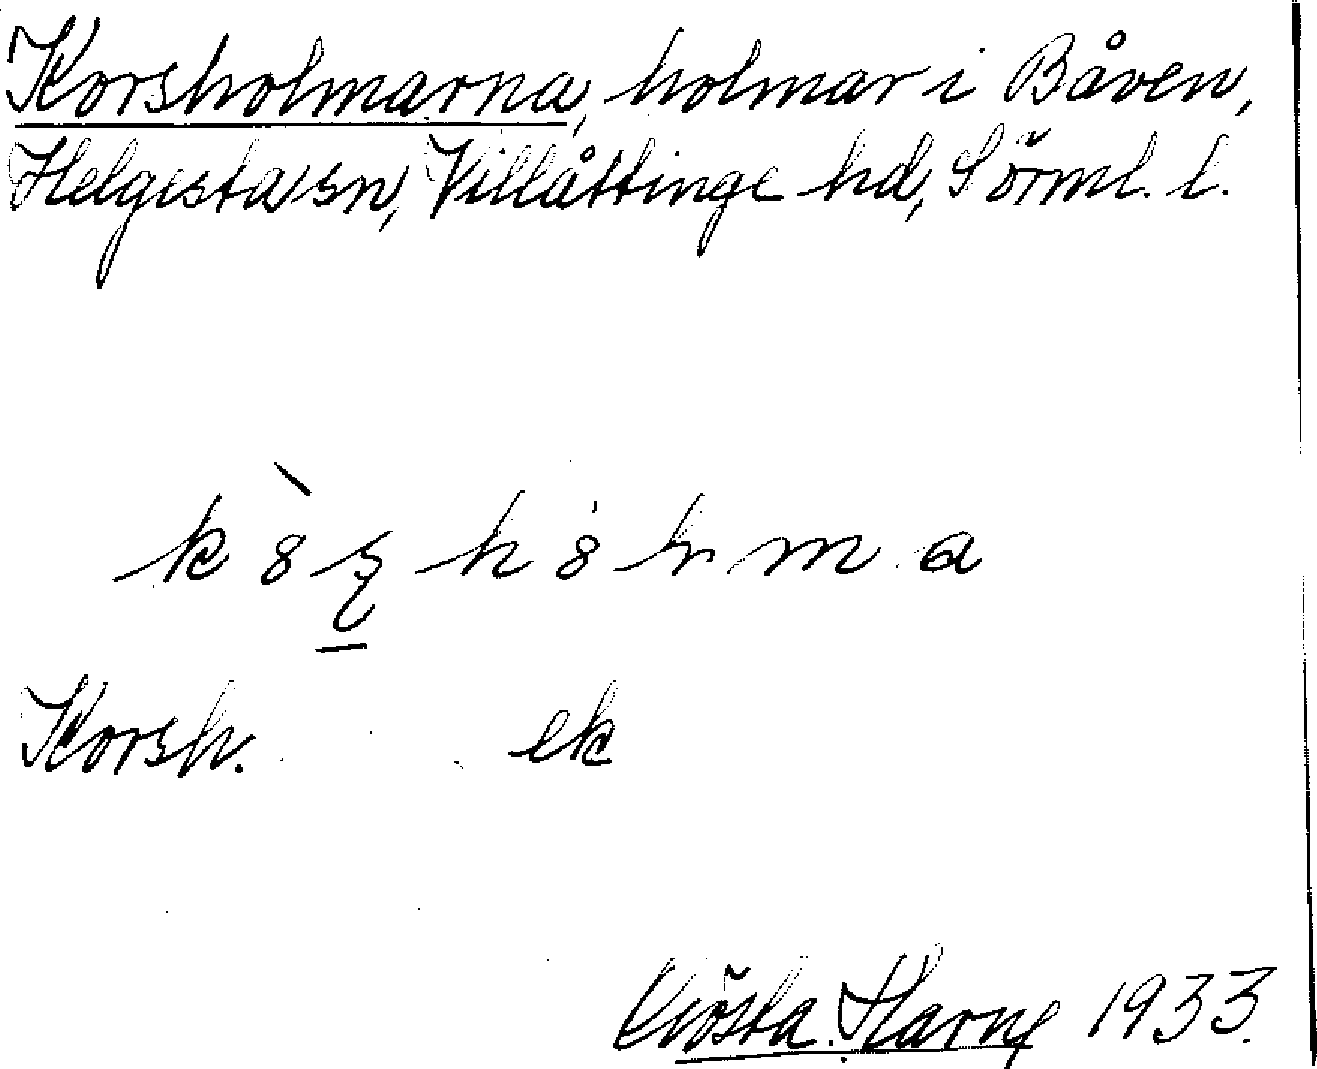 Korsholmarna, holmar i Båven,
Helgesta sn, Villåttinge hd, Sörml. l.
Korsh. ek
Gösta Harne 1933.